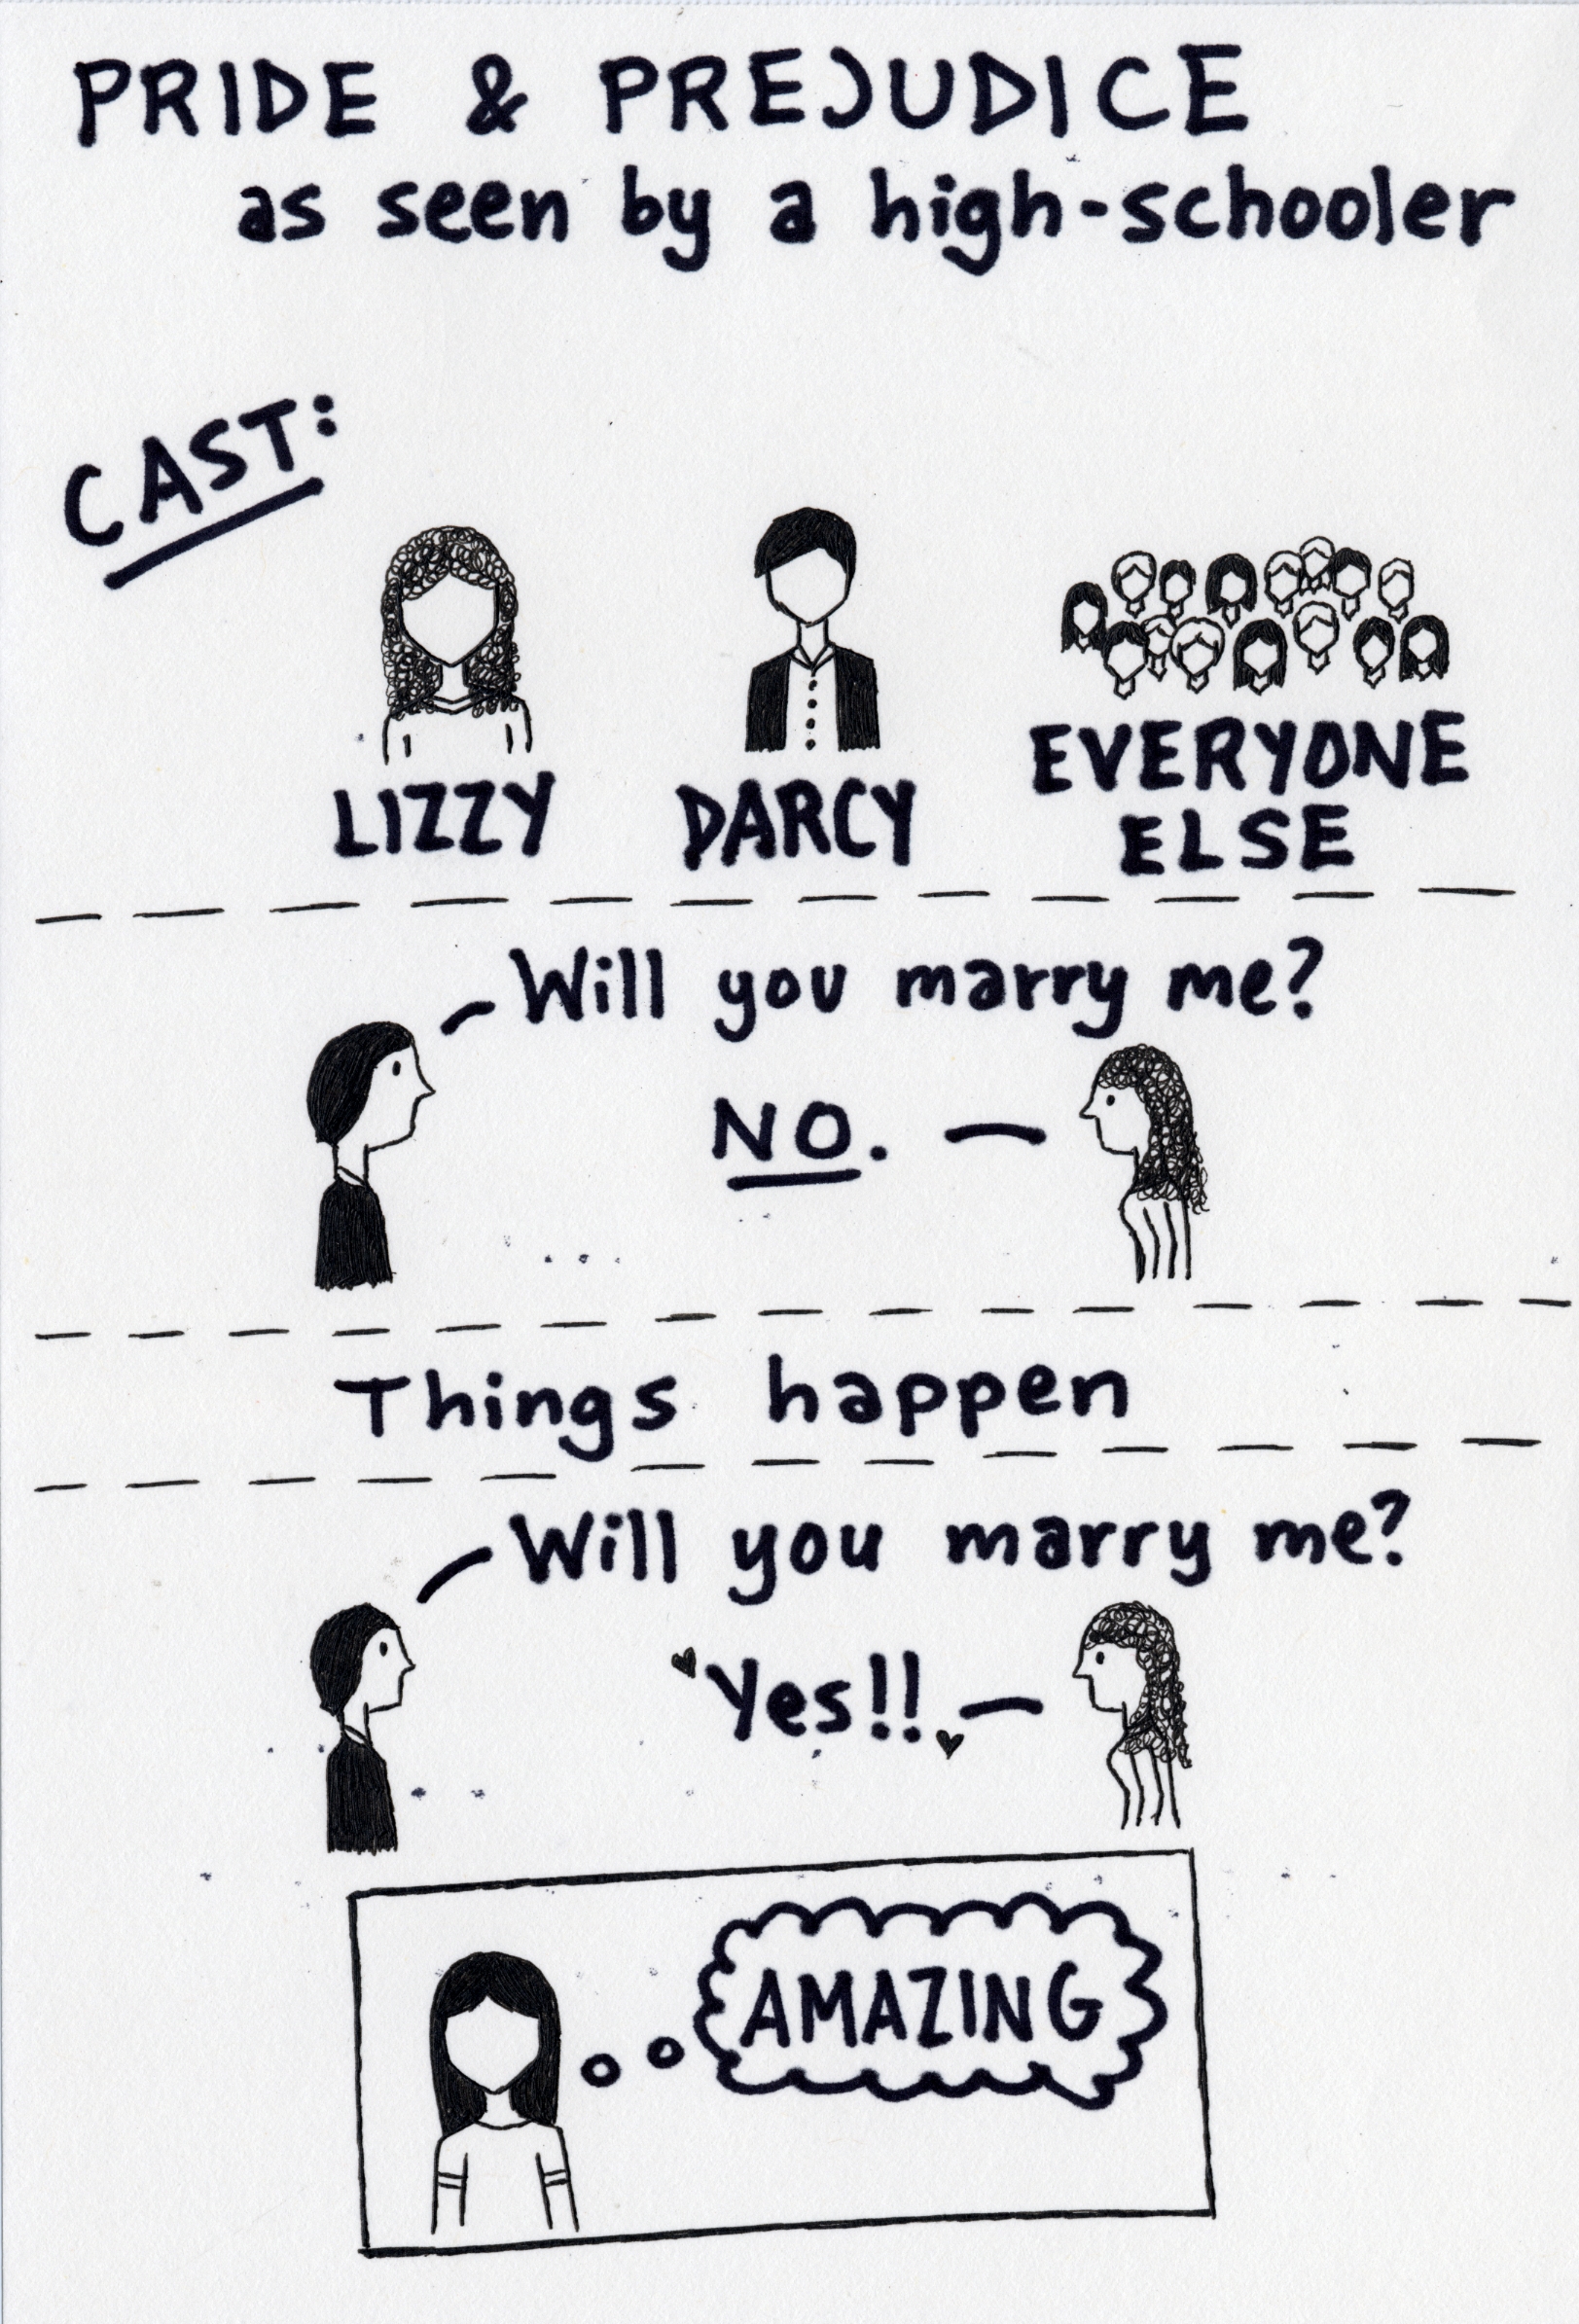 PRIDE & PREJUDICE
as seen by a high-schooler
CAST:
LIZZY
DARCY
EVERYONE
ELSE
Will you marry me?
NO.
Things happen
Will you marry me?
Yes!!
AMAZING